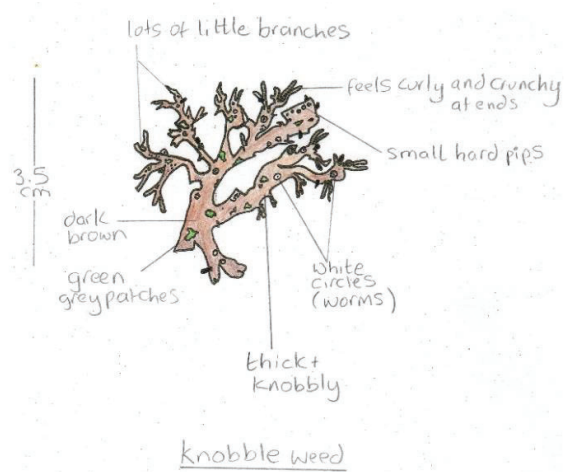 lots of little branches
feels curly and crunchy
at ends
small hard pips
3.5
cm
dark
brown
green
grey patches
white
circles
(worms)
thick +
knobbly
knobble weed